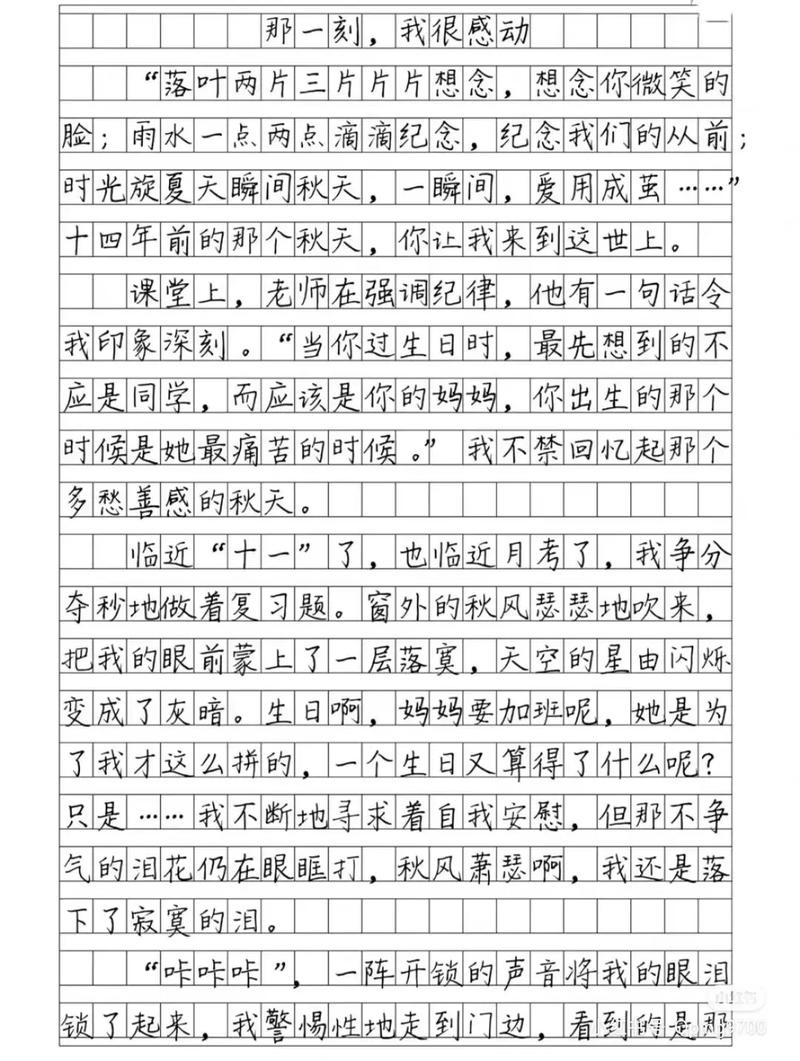 那一刻，我很感动
“落叶两片三片片片想念，想念你微笑的
脸；雨水一点两点滴滴纪念，纪念我们的从前；
时光旋夏天瞬间秋天，一瞬间，爱用成茧……”
十四年前的那个秋天，你让我来到这世上。
课堂上，老师在强调纪律，他有一句话令
我印象深刻。“当你过生日时，最先想到的不
应是同学，而应该是你的妈妈，你出生的那个
时候是她最痛苦的时候。”我不禁回忆起那个
多愁善感的秋天。
临近“十一”了，也临近月考了，我争分
夺秒地做着复习题。窗外的秋风瑟瑟地吹来，
把我的眼前蒙上了一层落寞，天空的星由闪烁
变成了灰暗。生日啊，妈妈要加班呢，她是为
了我才这么拼的，一个生日又算得了什么呢？
只是……我不断地寻求着自我安慰，但那不争
气的泪花仍在眼眶打，秋风萧瑟啊，我还是落
下了寂寞的泪。
“咔咔咔”，一阵开锁的声音将我的眼泪
锁了起来，我警惕性地走到门边，看到的是那
小红书